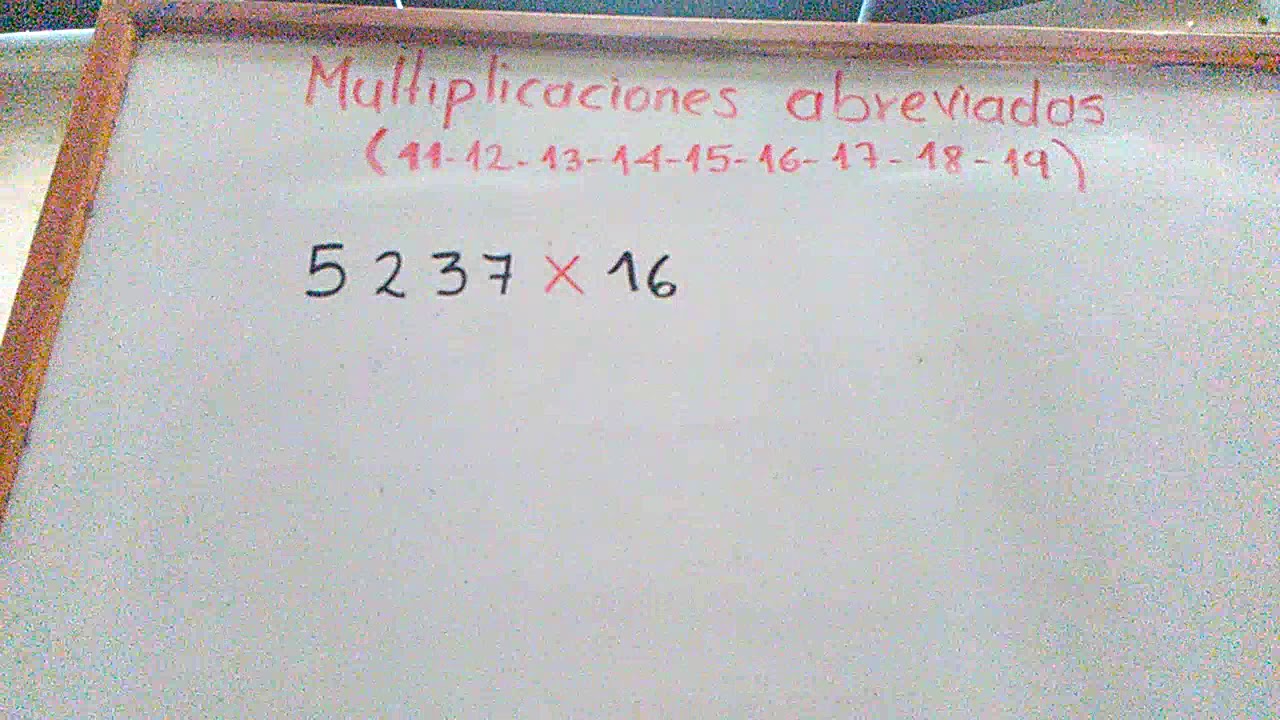 Multiplicaciones abreviadas
(11-12-13-14-15-16-17-18-19)
5237 x 16